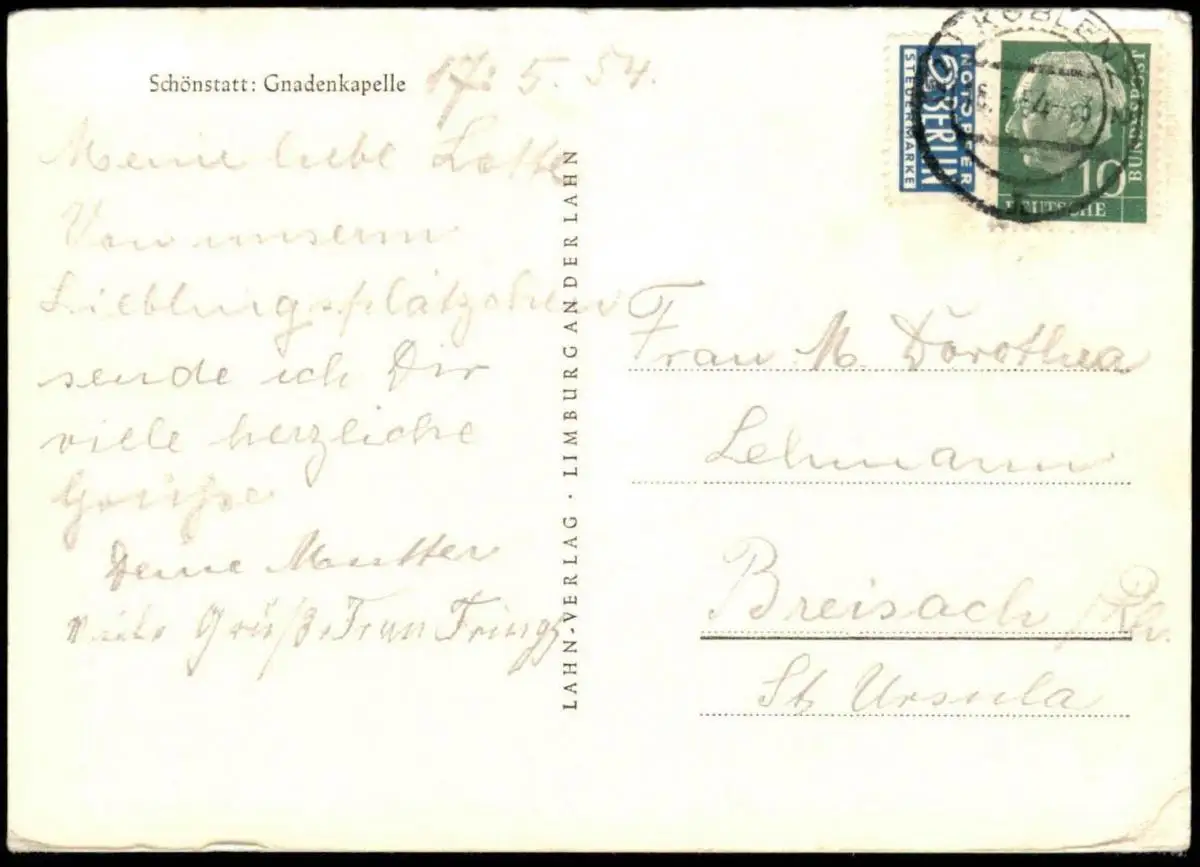 Schönstatt: Gnadenkapelle
17. 5. 54.
Meine liebe Lotte
Von unserm
Lieblingsplätzchen
sende ich Dir
viele herzliche
Grüße
Deine Mutter
viele Grüße Frau Frings
LAHN-VERLAG · LIMBURG AN DER LAHN
NOTOPFER
2 BERLIN
STEUERMARKE
KOBLENZ
DEUTSCHE
BUNDESPOST
10
Frau M. Dorothea
Lehmann
Breisach /Rh.
St. Ursula